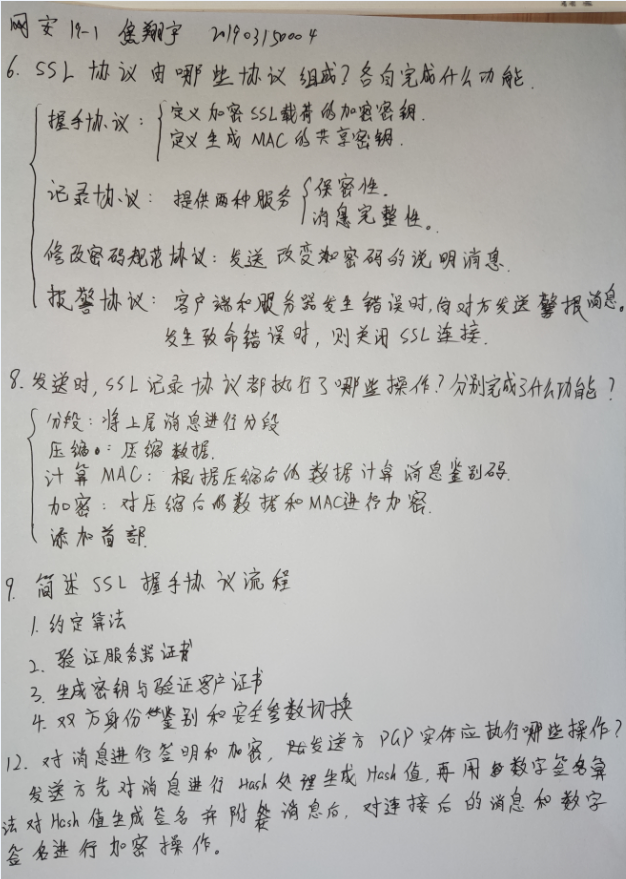 网安19-1 焦翔宇 201903150004
6. SSL协议由哪些协议组成?各自完成什么功能.
握手协议: 定义加密SSL载荷的加密密钥.
定义生成MAC的共享密钥.
记录协议: 提供两种服务 保密性.
消息完整性。
修改密码规范协议: 发送改变加密码的说明消息.
报警协议: 客户端和服务器发生错误时,向对方发送警报消息。
发生致命错误时, 则关闭SSL连接.
8. 发送时, SSL记录协议都执行了哪些操作?分别完成了什么功能?
分段: 将上层消息进行分段
压缩: 压缩数据.
计算MAC: 根据压缩后的数据计算消息鉴别码.
加密: 对压缩后的数据和MAC进行加密.
添加首部.
9. 简述SSL握手协议流程
1. 约定算法
2. 验证服务器证书
3. 生成密钥与验证客户证书
4. 双方身份鉴别和安全参数切换
12. 对消息进行签明和加密, 发送方PGP实体应执行哪些操作?
发送方先对消息进行Hash处理生成Hash值, 再用数字签名算
法对Hash值生成签名并附消息后, 对连接后的消息和数字
签名进行加密操作。